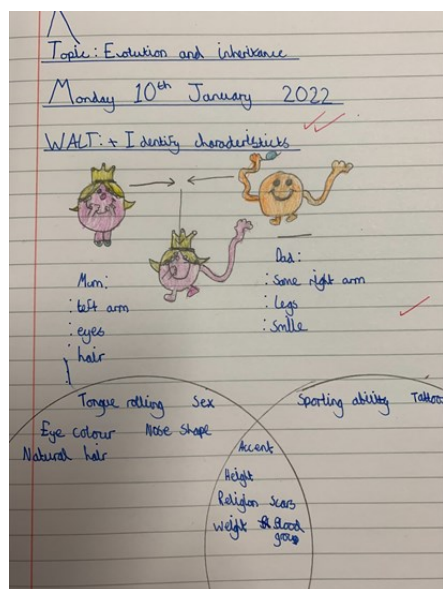 Topic: Evolution and inheritance
Monday 10th January 2022
WALT: + Identify characteristicks
Mum:
: left arm
: eyes
: hair
Dad:
: Some right arm
: Legs
: Smile
Tongue rolling Sex
Eye colour Nose shape
Natural hair
Accent
Height
Religion Scars
Weight Blood
group
Sporting ability Tattoo